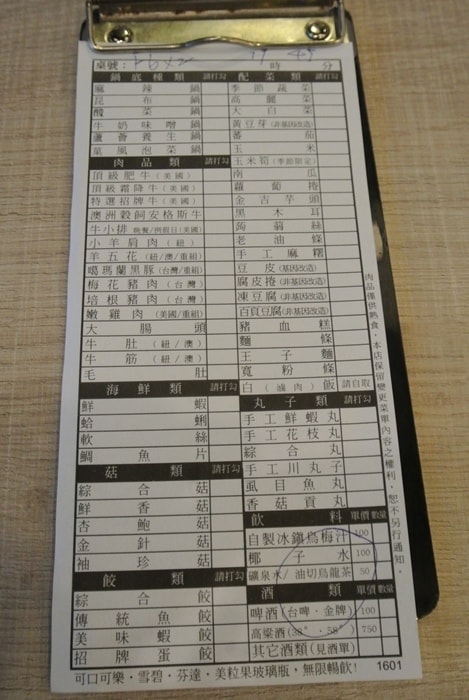 桌號：
時 分
鍋底種類 請打勾
麻辣鍋
昆布鍋
酸菜鍋
牛奶味噌鍋
蘆薈養生鍋
菓風泡菜鍋
肉品類 請打勾
頂級肥牛(美國)
頂級霜降牛(美國)
特選招牌牛(美國)
澳洲穀飼安格斯牛
牛小排 晚餐/例假日(美國)
小羊肩肉(紐)
羊五花(紐/澳/重組)
噶瑪蘭黑豚(台灣/重組)
梅花豬肉(台灣)
培根豬肉(台灣)
嫩雞肉(美國/重組)
大腸頭
牛肚(紐/澳)
牛筋(紐/澳)
毛肚
海鮮類 請打勾
鮮蝦
蛤蜊
軟絲
鯛魚片
菇類 請打勾
綜合菇
鮮香菇
杏鮑菇
金針菇
袖珍菇
餃類 請打勾
綜合餃
傳統魚餃
美味蝦餃
招牌蛋餃
配菜類 請打勾
季節蔬菜
高麗菜
大白菜
黃豆芽(非基因改造)
蕃茄
玉米
玉米筍(季節限定)
南瓜
蘿蔔捲
金吉芋頭
黑木耳
蒟蒻絲
老油條
手工麻糬
豆皮(非基因改造)
腐皮捲(非基因改造)
凍豆腐(非基因改造)
百頁豆腐(非基因改造)
豬血糕
麵條
王子麵
寬粉條
白(滷肉)飯 請自取
丸子類 請打勾
手工鮮蝦丸
手工花枝丸
綜合丸
手工川丸子
虱目魚丸
香菇貢丸
飲料 單價 數量
自製冰鎮烏梅汁 100
椰子水 100
礦泉水/油切烏龍茶 50
酒類 單價 數量
啤酒(台啤．金牌) 100
高粱酒(38°．58°) 750
其它酒類(見酒單)
肉品僅供熟食，本店保留變更菜單內容之權利，恕不另行通知。
可口可樂．雪碧．芬達．美粒果玻璃瓶，無限暢飲! 1601